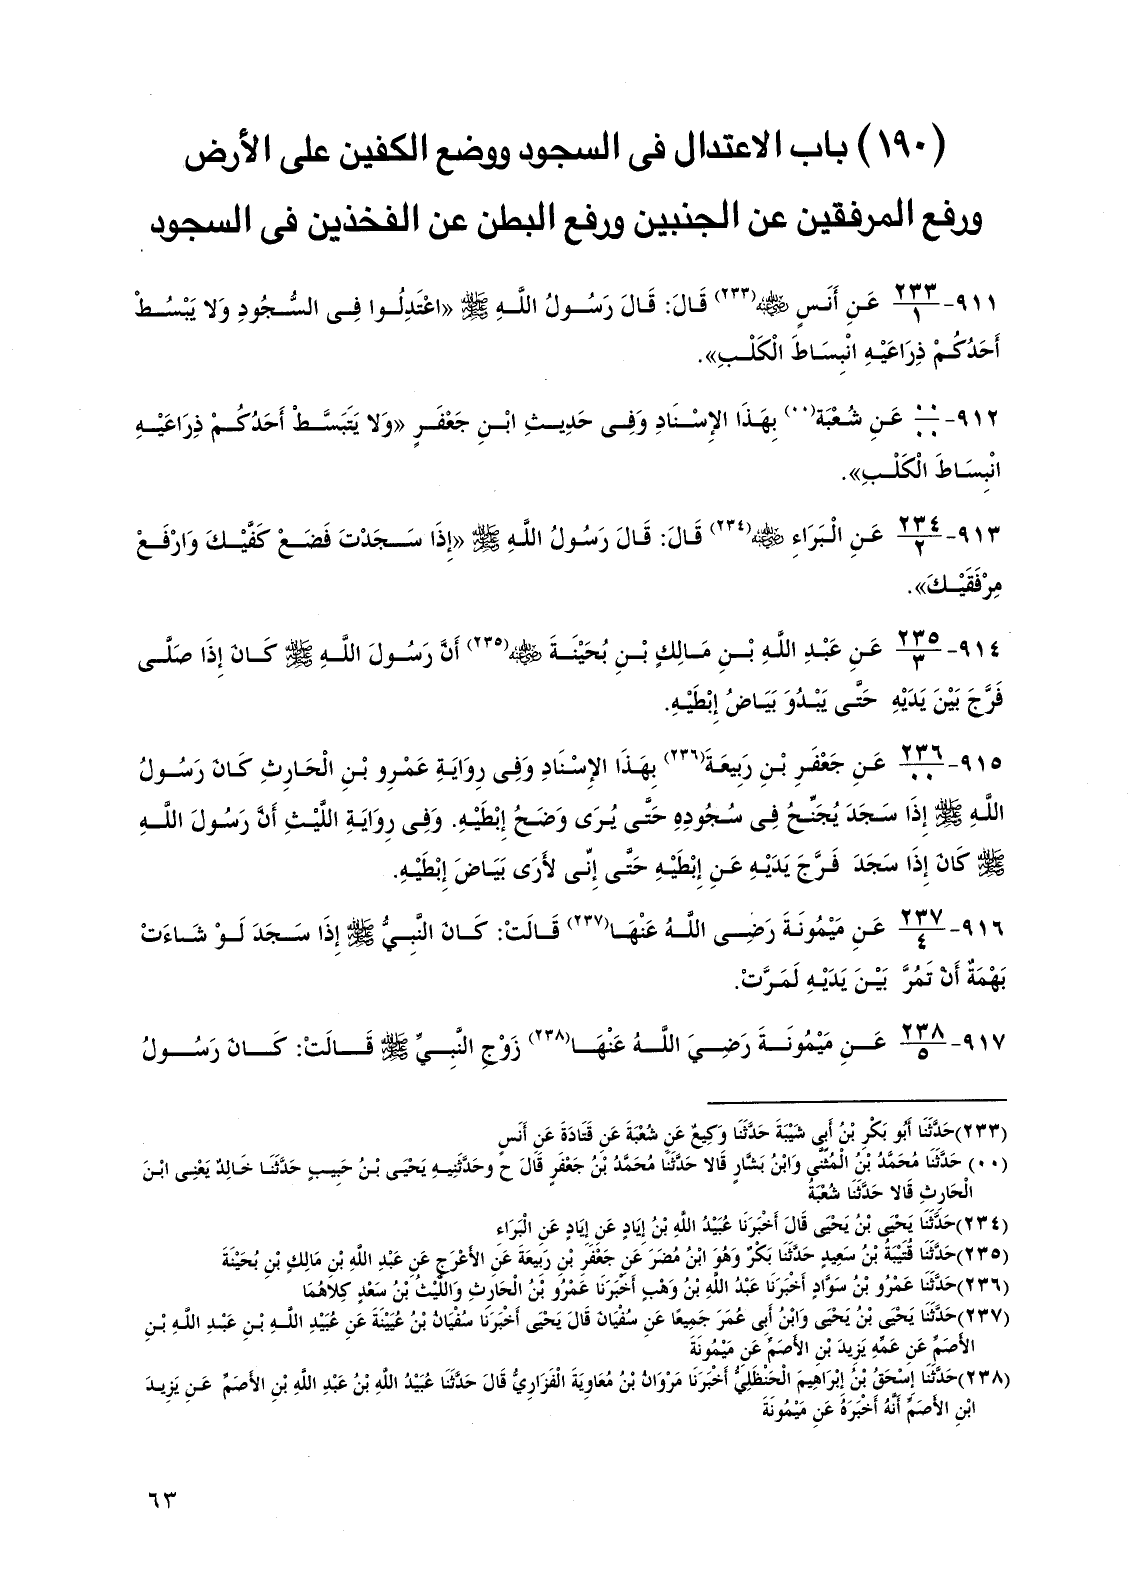 (١٩٠) باب الاعتدال فى السجود ووضع الكفين على الأرض
ورفع المرفقين عن الجنبين ورفع البطن عن الفخذين فى السجود
٩١١- ٢٣٣/١ عَنِ أَنَسٍ ﵁(٢٣٣) قَالَ: قَالَ رَسُولُ اللَّهِ ﷺ «اعْتَدِلُوا فِى السُّجُودِ وَلا يَبْسُطْ
أَحَدُكُمْ ذِرَاعَيْهِ انْبِسَاطَ الْكَلْبِ».
٩١٢- ‎··/·· عَنِ شُعْبَةَ(٠٠) بِهَذَا الإِسْنَادِ وَفِى حَدِيثِ ابْنِ جَعْفَرٍ «وَلا يَتَبَسَّطْ أَحَدُكُمْ ذِرَاعَيْهِ
انْبِسَاطَ الْكَلْبِ».
٩١٣- ٢٣٤/٢ عَنِ الْبَرَاءِ ﵁(٢٣٤) قَالَ: قَالَ رَسُولُ اللَّهِ ﷺ «إِذَا سَجَدْتَ فَضَعْ كَفَّيْكَ وَارْفَعْ
مِرْفَقَيْكَ».
٩١٤- ٢٣٥/٣ عَنِ عَبْدِ اللَّهِ بْنِ مَالِكٍ بْنِ بُحَيْنَةَ ﵁(٢٣٥) أَنَّ رَسُولَ اللَّهِ ﷺ كَانَ إِذَا صَلَّى
فَرَّجَ بَيْنَ يَدَيْهِ حَتَّى يَبْدُوَ بَيَاضُ إِبْطَيْهِ.
٩١٥- ٢٣٦/·· عَنِ جَعْفَرِ بْنِ رَبِيعَةَ(٢٣٦) بِهَذَا الإِسْنَادِ وَفِى رِوَايَةِ عَمْرِو بْنِ الْحَارِثِ كَانَ رَسُولُ
اللَّهِ ﷺ إِذَا سَجَدَ يُجَنِّحُ فِى سُجُودِهِ حَتَّى يُرَى وَضَحُ إِبْطَيْهِ. وَفِى رِوَايَةِ اللَّيْثِ أَنَّ رَسُولَ اللَّهِ
ﷺ كَانَ إِذَا سَجَدَ فَرَّجَ يَدَيْهِ عَنِ إِبْطَيْهِ حَتَّى إِنِّى لأَرَى بَيَاضَ إِبْطَيْهِ.
٩١٦- ٢٣٧/٤ عَنِ مَيْمُونَةَ رَضِى اللَّهُ عَنْهَا(٢٣٧) قَالَتْ: كَانَ النَّبِيُّ ﷺ إِذَا سَجَدَ لَوْ شَاءَتْ
بَهْمَةٌ أَنْ تَمُرَّ بَيْنَ يَدَيْهِ لَمَرَّتْ.
٩١٧- ٢٣٨/٥ عَنِ مَيْمُونَةَ رَضِيَ اللَّهُ عَنْهَا(٢٣٨) زَوْجِ النَّبِيِّ ﷺ قَالَتْ: كَانَ رَسُولُ
(٢٣٣)حَدَّثَنَا أَبُو بَكْرِ بْنُ أَبِى شَيْبَةَ حَدَّثَنَا وَكِيعٌ عَنِ شُعْبَةَ عَنِ قَتَادَةَ عَنِ أَنَسٍ
(٠٠) حَدَّثَنَا مُحَمَّدُ بْنُ الْمُثَنَّى وَابْنُ بَشَّارٍ قَالا حَدَّثَنَا مُحَمَّدُ بْنُ جَعْفَرٍ قَالَ ح وحَدَّثَنِيهِ يَحْيَى بْنُ حَبِيبٍ حَدَّثَنَا خَالِدٌ يَعْنِى ابْنَ
الْحَارِثِ قَالا حَدَّثَنَا شُعْبَةُ
(٢٣٤)حَدَّثَنَا يَحْيَى بْنُ يَحْيَى قَالَ أَخْبَرَنَا عُبَيْدُ اللَّهِ بْنُ إِيَادٍ عَنِ إِيَادٍ عَنِ الْبَرَاءِ
(٢٣٥)حَدَّثَنَا قُتَيْبَةُ بْنُ سَعِيدٍ حَدَّثَنَا بَكْرٌ وَهُوَ ابْنُ مُضَرَ عَنِ جَعْفَرِ بْنِ رَبِيعَةَ عَنِ الأَعْرَجِ عَنِ عَبْدِ اللَّهِ بْنِ مَالِكٍ بْنِ بُحَيْنَةَ
(٢٣٦)حَدَّثَنَا عَمْرُو بْنُ سَوَّادٍ أَخْبَرَنَا عَبْدُ اللَّهِ بْنُ وَهْبٍ أَخْبَرَنَا عَمْرُو بْنُ الْحَارِثِ وَاللَّيْثُ بْنُ سَعْدٍ كِلاهُمَا
(٢٣٧)حَدَّثَنَا يَحْيَى بْنُ يَحْيَى وَابْنُ أَبِى عُمَرَ جَمِيعًا عَنِ سُفْيَانَ قَالَ يَحْيَى أَخْبَرَنَا سُفْيَانُ بْنُ عُيَيْنَةَ عَنِ عُبَيْدِ اللَّهِ بْنِ عَبْدِ اللَّهِ بْنِ
الأَصَمِّ عَنِ عَمِّهِ يَزِيدَ بْنِ الأَصَمِّ عَنِ مَيْمُونَةَ
(٢٣٨)حَدَّثَنَا إِسْحَقُ بْنُ إِبْرَاهِيمَ الْحَنْظَلِيُّ أَخْبَرَنَا مَرْوَانُ بْنُ مُعَاوِيَةَ الْفَزَارِيُّ قَالَ حَدَّثَنَا عُبَيْدُ اللَّهِ بْنُ عَبْدِ اللَّهِ بْنِ الأَصَمِّ عَنِ يَزِيدَ
ابْنِ الأَصَمِّ أَنَّهُ أَخْبَرَهُ عَنِ مَيْمُونَةَ
٦٣